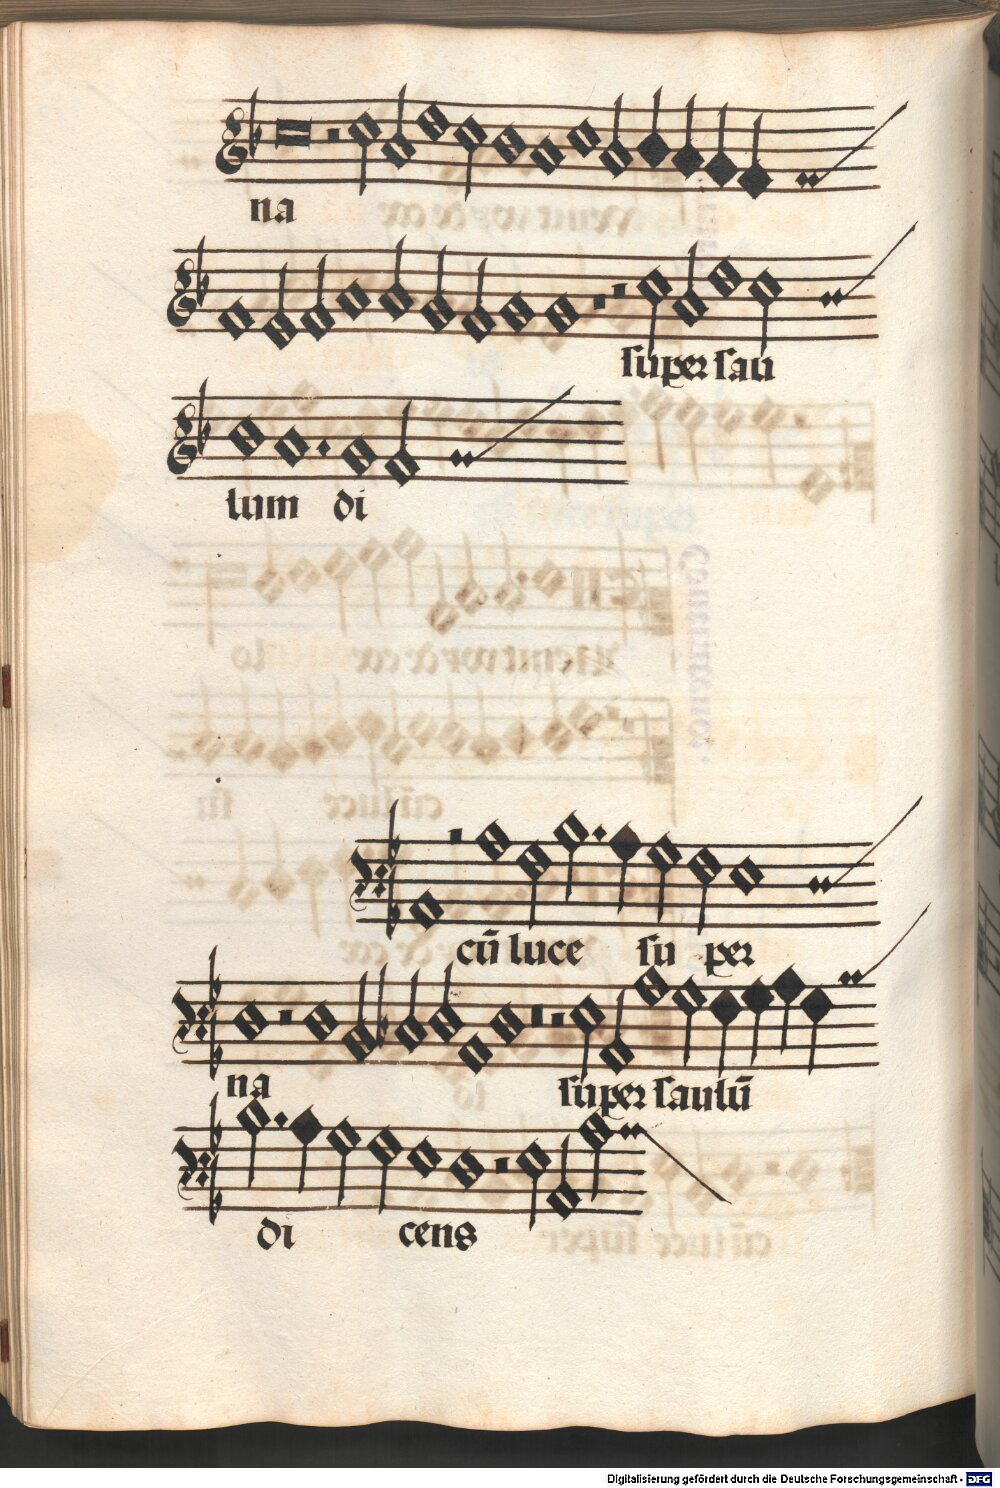 na
super sau
lum di
cū luce su per
na
super saulū
di cens
Digitalisierung gefördert durch die Deutsche Forschungsgemeinschaft - DFG